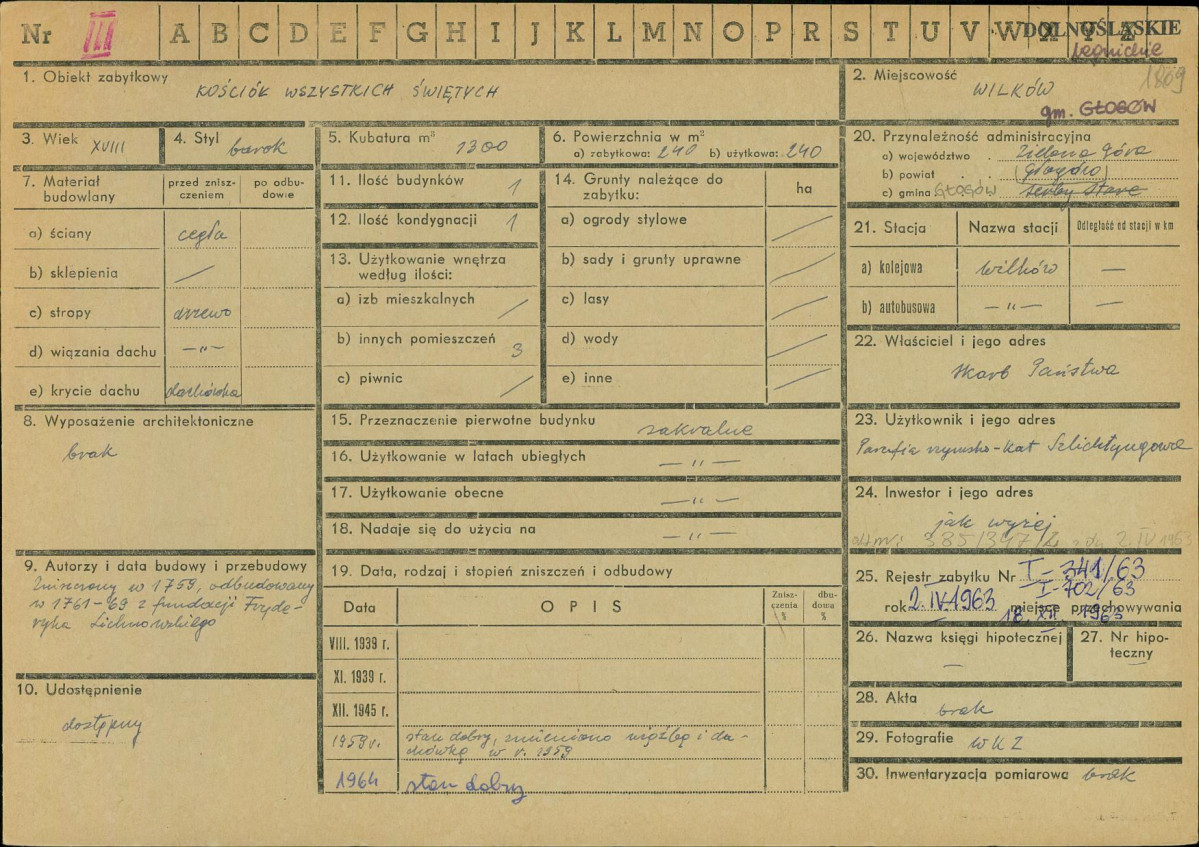 Nr III A B C D E F G H I J K L M N O P R S T U V W X Y Z DOLNOŚLĄSKIE
legnickie
1. Obiekt zabytkowy
KOŚCIÓŁ WSZYSTKICH ŚWIĘTYCH
2. Miejscowość 1809
WILKÓW
gm. GŁOGÓW
3. Wiek XVIII
4. Styl barok
5. Kubatura m³ 1300
6. Powierzchnia w m²
a) zabytkowa: 240 b) użytkowa: 240
20. Przynależność administracyjna
a) województwo . Zielona Góra
b) powiat . (Głogów)
c) gmina GŁOGÓW Serby Stare
7. Materiał budowlany
przed znisz-
czeniem
po odbu-
dowie
a) ściany cegła
b) sklepienia /
c) stropy drzewo
d) wiązania dachu —„—
e) krycie dachu dachówka
11. Ilość budynków 1
12. Ilość kondygnacji 1
13. Użytkowanie wnętrza
według ilości:
a) izb mieszkalnych /
b) innych pomieszczeń 3
c) piwnic /
14. Grunty należące do
zabytku:
ha
a) ogrody stylowe /
b) sady i grunty uprawne /
c) lasy /
d) wody /
e) inne /
21. Stacja Nazwa stacji Odległość od stacji w km
a) kolejowa Wilków —
b) autobusowa —„— —
22. Właściciel i jego adres
Skarb Państwa
8. Wyposażenie architektoniczne
brak
15. Przeznaczenie pierwotne budynku sakralne
16. Użytkowanie w latach ubiegłych —„—
17. Użytkowanie obecne —„—
18. Nadaje się do użycia na —„—
23. Użytkownik i jego adres
Parafia rzymsko-kat Szlichtyngowa
24. Inwestor i jego adres
jak wyżej
2. IV 1963
9. Autorzy i data budowy i przebudowy
Zniszczony w 1759, odbudowany
w 1761-69 z fundacji Fryde-
ryka Lichnowskiego
19. Data, rodzaj i stopień zniszczeń i odbudowy
Data OPIS
Znisz-
czenia
%
dbu-
dowa
%
VIII. 1939 r.
XI. 1939 r.
XII. 1945 r.
1959 r. stan dobry, zmieniono więźbę i da-
chówkę w r. 1959
1964 stan dobry
25. Rejestr zabytku Nr I-341/63
I-702/63
rok 2.IV.1963 miejsce przechowywania
18. XII. 1963
26. Nazwa księgi hipotecznej
—
27. Nr hipo-
teczny
—
10. Udostępnienie
dostępny
28. Akta
brak
29. Fotografie WKZ
30. Inwentaryzacja pomiarowa brak